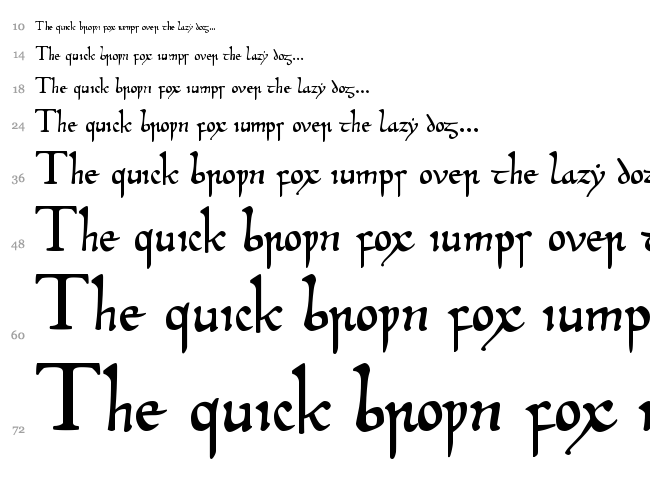 10 The quick brown fox jumps over the lazy dog...
14 The quick brown fox jumps over the lazy dog...
18 The quick brown fox jumps over the lazy dog...
24 The quick brown fox jumps over the lazy dog...
36 The quick brown fox jumps over the lazy dog
48 The quick brown fox jumps over t
60 The quick brown fox jump
72 The quick brown fox